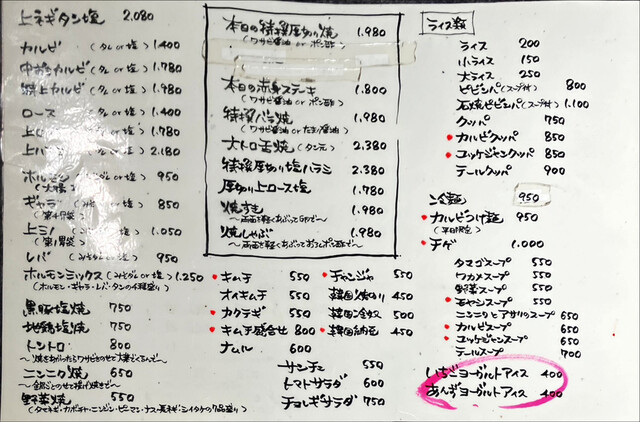 上ネギタン塩 2.080
カルビ (タレ or 塩) 1.400
中おちカルビ (タレ or 塩) 1.780
特上カルビ (タレ or 塩) 1.980
ロース (タレ or 塩) 1.400
or 塩) 1.780
or 塩) 2.180
ホルモン or 塩) 950
(大腸)
ギャラ or 塩) 850
(第4胃袋)
上ミノ or 塩) 1.050
(第1胃袋)
レバ 950
ホルモンミックス (みそダレ or 塩) 1.250
(ホルモン・ギャラ・レバ・タンの4種盛り)
黒豚塩焼 750
地鶏塩焼 750
トントロ 800
ニンニク焼 650
野菜焼 550
(タマネギ・カボチャ・ニンジン・ピーマン・ナス・長ネギ・シイタケの7品盛り)
本日の特撰厚切り焼 1.980
(ワサビ醤油 or ポン酢)
本日の赤身ステーキ 1.800
(ワサビ醤油 or ポン酢)
特撰バラ焼 1.980
(ワサビ醤油 or たまり醤油)
大トロ缶焼 (タン元) 2.380
特撰厚切り塩ハラミ 2.380
厚切り上ロース塩 1.980
焼すき 1.980
焼しゃぶ 1.980
〜両面を軽くあぶっておろしポン酢で〜
キムチ 550
オイキムチ 550
カクテギ 550
キムチ盛合せ 800
ナムル 600
チャンジャ 550
韓国のり 450
韓国冷奴 500
韓国納豆 450
サンチュ 550
トマトサラダ 600
チョレギサラダ 750
ライス類
ライス 200
小ライス 150
大ライス 250
ビビンバ (スープ付) 800
石焼ビビンバ (スープ付) 1.100
クッパ 750
カルビクッパ 850
ユッケジャンクッパ 850
テールクッパ 900
冷麺 950
カルビつけ麺 950
(平日限定)
チゲ 1.000
タマゴスープ 550
ワカメスープ 550
野菜スープ 550
モヤシスープ 550
ニンニクとアサリのスープ 650
カルビスープ 650
ユッケジャンスープ 650
テールスープ 700
いちごヨーグルトアイス 400
あんずヨーグルトアイス 400